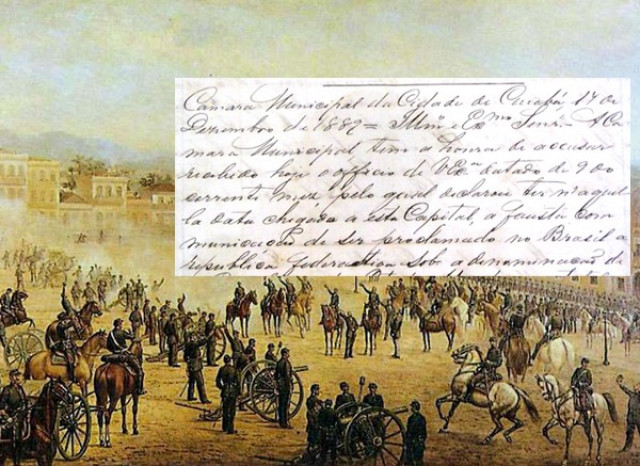 Camara Municipal da Cidade de Cuiabá 17 de
Dezembro de 1889 = Illmo e Exmo Senr = A Ca
mara Municipal tem a honra de accusar
recebido hoje o officio de V Exª datado de 9 do
corrente mez pelo qual declarou ter naquel
la data chegado a esta Capital, a fausta com
municação de ser proclamado no Brasil a
republica federativa sob a denominação de